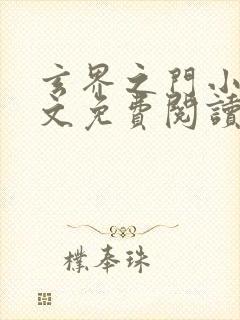 玄界之門小
文免費閱讀
樸奉珠